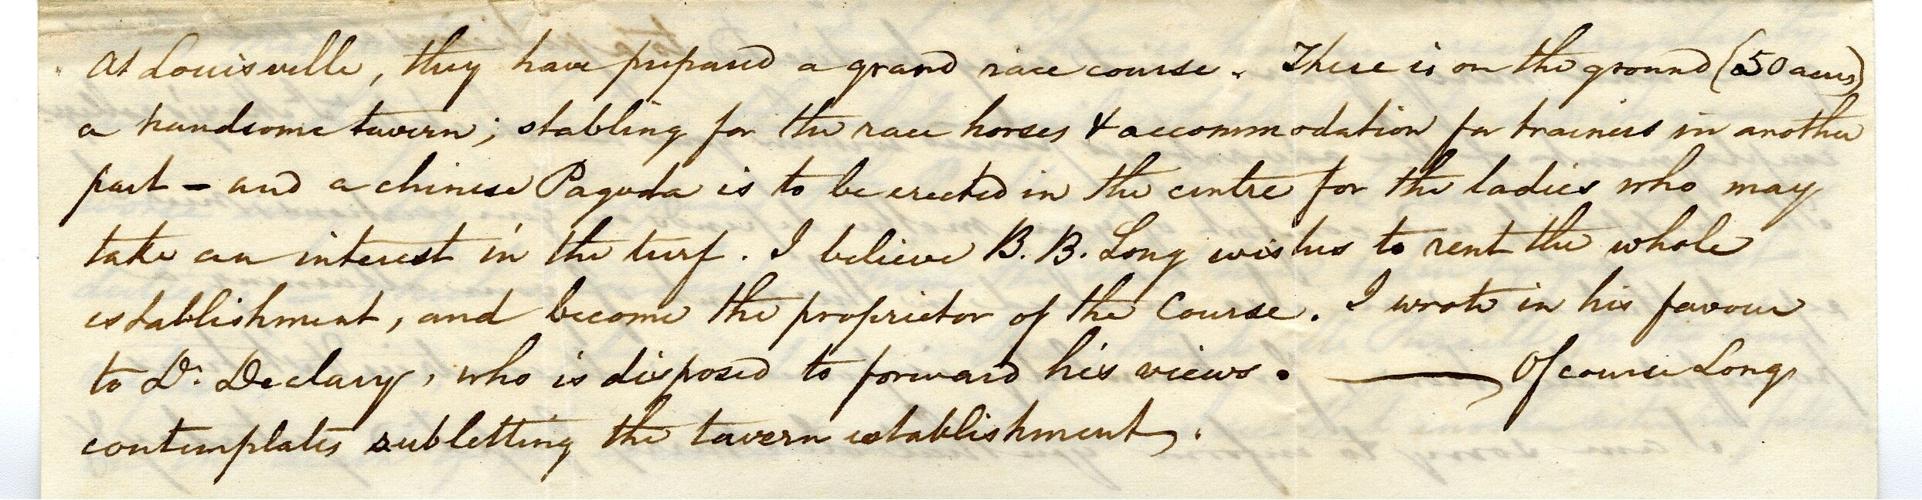 At Louisville, they have prepared a grand race course. There is on the ground (50 acres)
a handsome tavern; stabling for the race horses & accommodation for trainers in another
part - and a chinese Pagoda is to be erected in the centre for the ladies who may
take an interest in the turf. I believe B. B. Long wishes to rent the whole
establishment, and become the proprietor of the Course. I wrote in his favour
to Dr. Declary, who is disposed to forward his views. — Of course Long
contemplates subletting the tavern establishment.